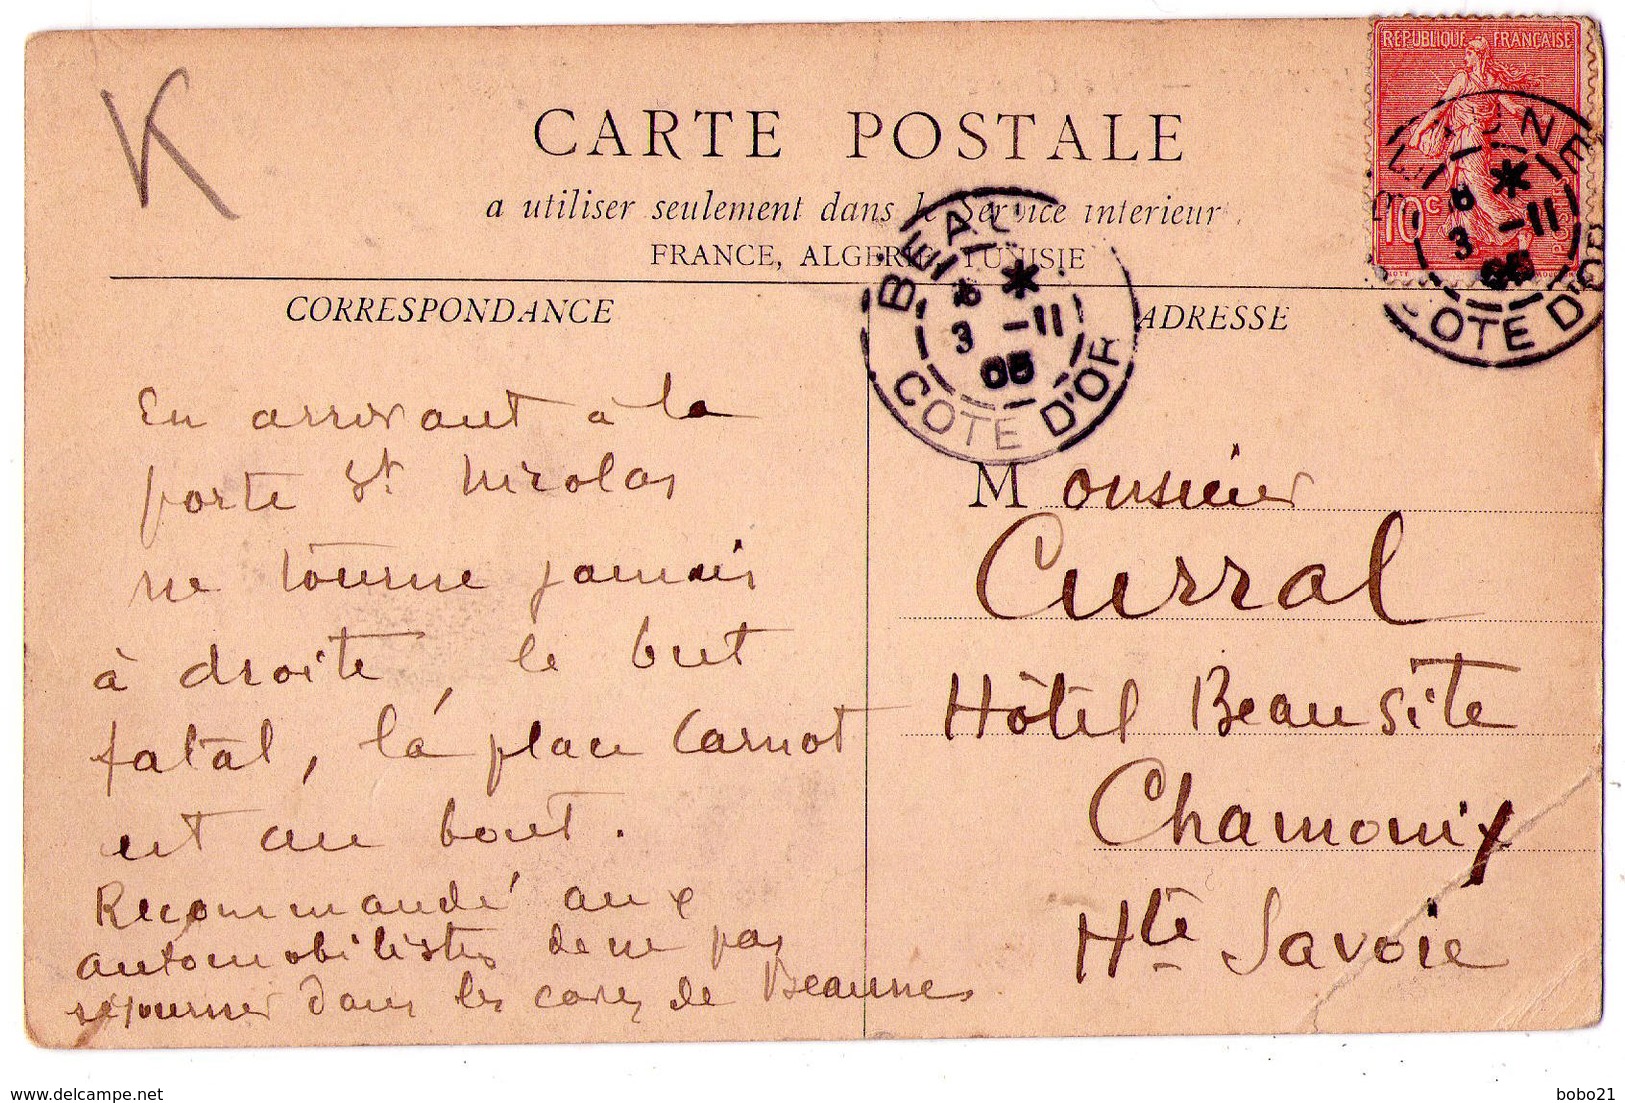 K
CARTE POSTALE
a utiliser seulement dans le Service interieur
FRANCE, ALGERIE, TUNISIE
CORRESPONDANCE
ADRESSE
REPUBLIQUE FRANÇAISE
10c
POSTES
BEAUNE
3 -11
05
COTE D'OR
BEAU
3 -11
05
COTE D'OR
En arrivant à la
porte St Nicolas
ne tourne jamais
à droite, le but
fatal, la place Carnot
est au bout.
Recommandé aux
automobilistes de ne pas
séjourner dans les caves de Beaune
Monsieur
Curral
Hôtel Beausite
Chamonix
Hte Savoie
delcampe.net
bobo21